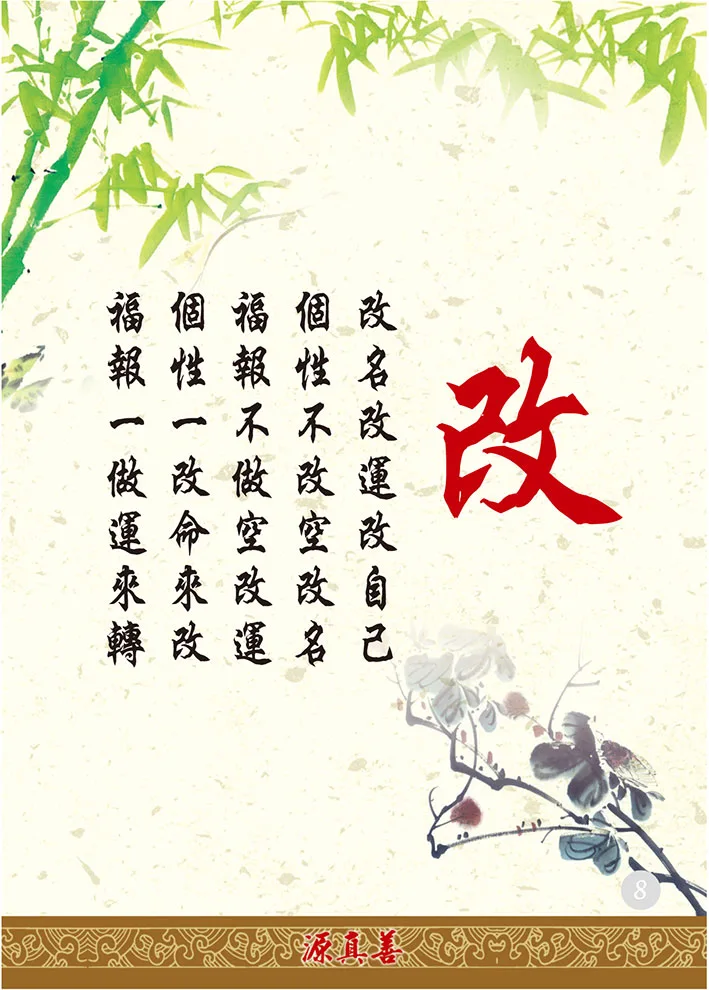 改
改名改運改自己
個性不改空改名
福報不做空改運
個性一改命來改
福報一做運來轉
8
源真善